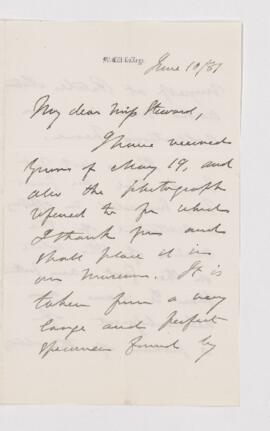 McGill College.
June 10/81
My dear Miss Steward,
I have received
yours of May 19, and
also the photograph
refered to for which
I thank you and
shall place it in
our Museum. It is
taken from a very
large and perfect
specimen found by